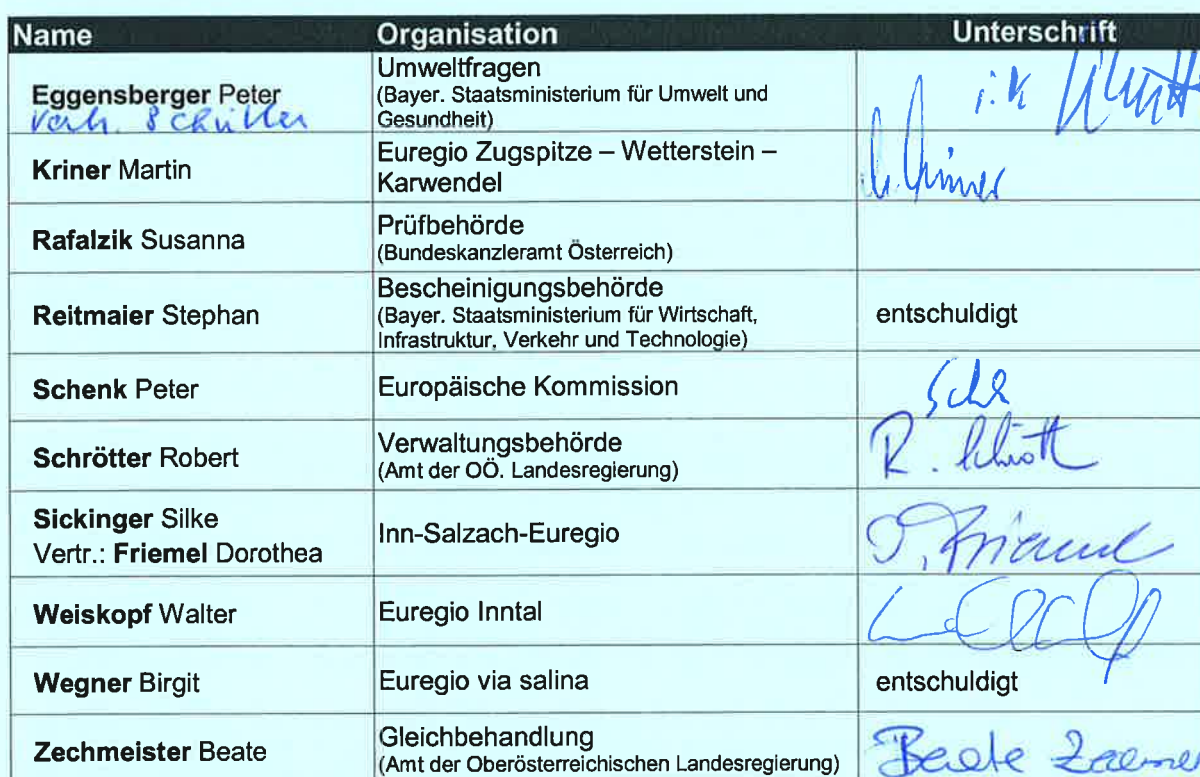 Name Organisation Unterschrift
Eggensberger Peter
Umweltfragen
(Bayer. Staatsministerium für Umwelt und
Gesundheit)
i.V.
Kriner Martin
Euregio Zugspitze – Wetterstein –
Karwendel
Rafalzik Susanna
Prüfbehörde
(Bundeskanzleramt Österreich)
Reitmaier Stephan
Bescheinigungsbehörde
(Bayer. Staatsministerium für Wirtschaft,
Infrastruktur, Verkehr und Technologie)
entschuldigt
Schenk Peter
Europäische Kommission
Schrötter Robert
Verwaltungsbehörde
(Amt der OÖ. Landesregierung)
R.
Sickinger Silke
Vertr.: Friemel Dorothea
Inn-Salzach-Euregio
Weiskopf Walter
Euregio Inntal
Wegner Birgit
Euregio via salina
entschuldigt
Zechmeister Beate
Gleichbehandlung
(Amt der Oberösterreichischen Landesregierung)
Beate